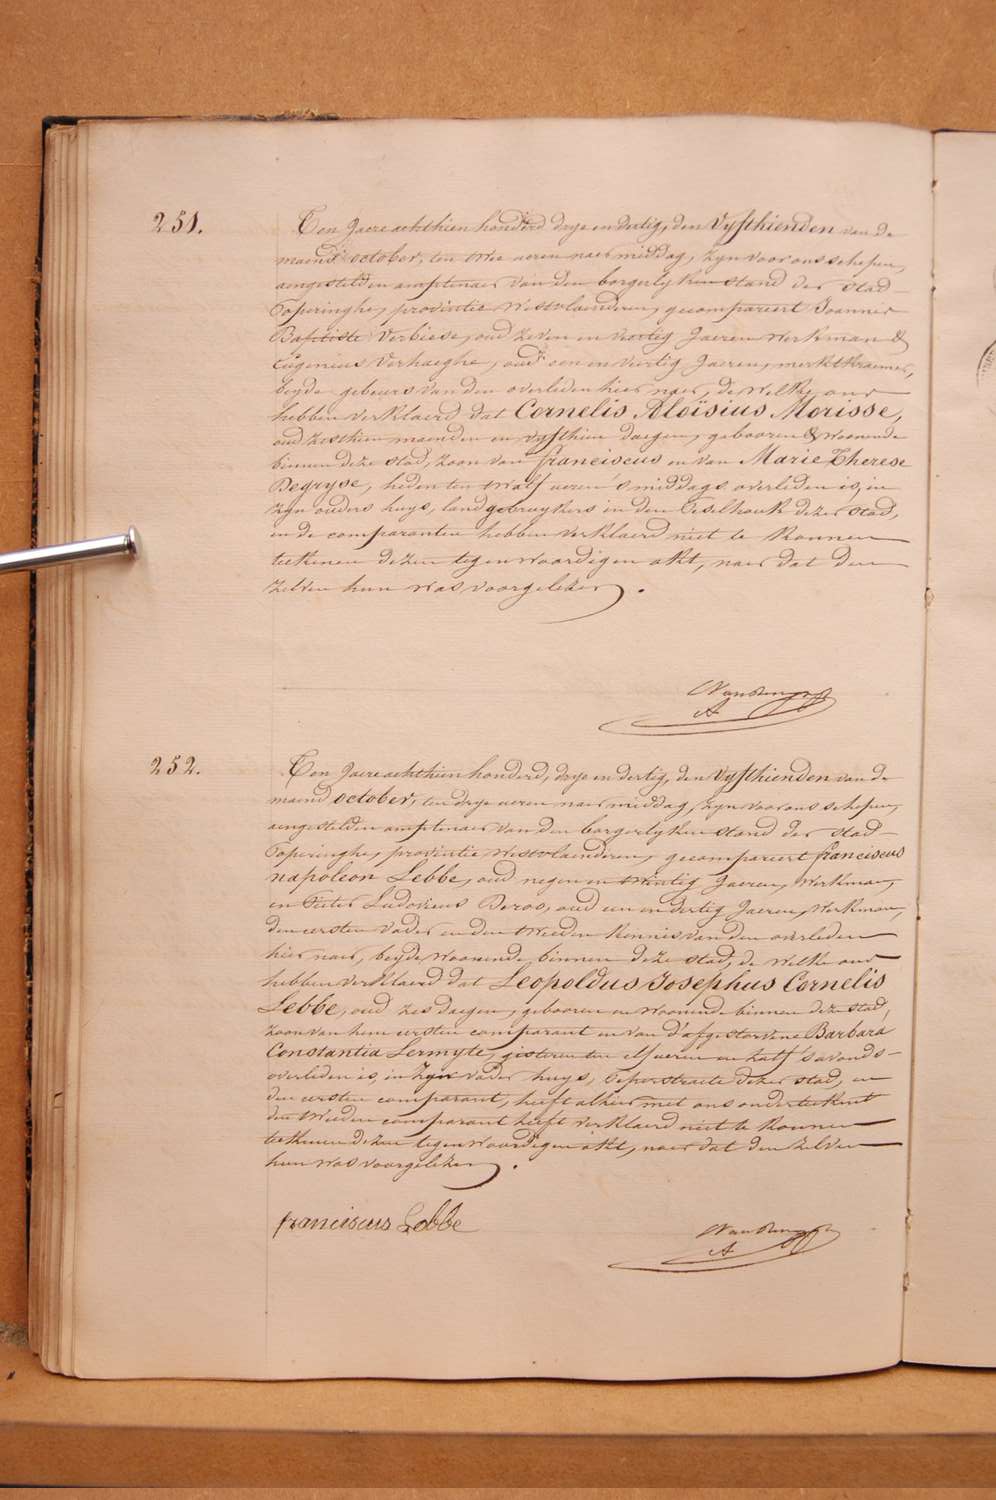 251.
Ten Jaere achthien honderd drye en dertig, den Vyfthienden van de
maend october, ten twee ueren naer middag, zyn voor ons schepen,
aengestelden amptenaer van den borgerlyken stand der stad
Poperinghe, provintie Westvlaenderen, gecompareert Joannes
Baptiste Verbiese, oud zeven en veertig Jaeren Werkman &
Eugenius Verhaeghe, oud een en veertig Jaeren, merktkraemer,
beyde gebeurs van den overleden hier naer, de welke ons
hebben verklaerd dat Cornelis Aloïsius Morisse,
oud zesthien maenden en vyfthien daegen, gebooren & woonende
binnen deze stad, zoon van franciscus en van Marie Therese
Degryse, heden ten twalf ueren 's middags overleden is, in
zyn ouders huys, landgebruykers in den Eeselhouk dezer stad,
en de comparanten hebben verklaerd niet te konnen
teekenen dezen tegenwoordigen akt, naer dat den
zelven hun was voorgelezen.
252.
Ten Jaere achthien honderd, drye en dertig, den Vyfthienden van de
maend october, ten drye ueren naer middag, zyn voor ons schepen,
aengestelden amptenaer van den borgerlyken stand der stad
Poperinghe, provintie Westvlaenderen, gecompareert franciscus
napoleon Lebbe, oud negen en twintig Jaeren, Werkman,
en Pieter Ludovicus Deros, oud een en dertig Jaeren, Werkman,
den eersten vader en den tweeden kennis van den overleden
hier naer, beyde woonende binnen deze stad, de welke ons
hebben verklaerd dat Leopoldus Josephus Cornelis
Lebbe, oud zes daegen, gebooren en woonende binnen deze stad,
zoon van hem eersten comparant en van d'afgestorvene Barbara
Constantia Lermyte, gisteren ten elf ueren en half 's avonds
overleden is, in zyn vader huys, Peperstraete dezer stad, en
den eersten comparant, heeft alhier met ons onderteekent
den tweeden comparant heeft verklaerd niet te konnen
teekenen dezen tegenwoordigen akt, naer dat den zelven
hun was voorgelezen.
franciscus Lebbe